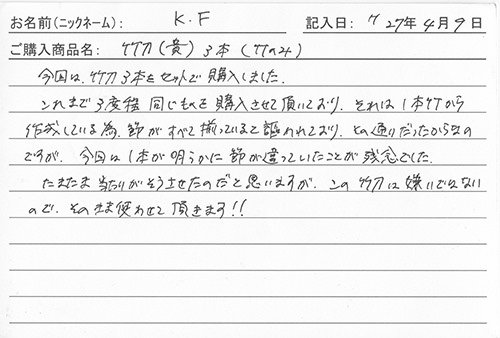 お名前(ニックネーム): K.F 記入日: H27年4月9日
ご購入商品名: 竹刀(貴) 3本(竹のみ)
今回は、竹刀3本をセットで購入しました。
これまで3度程同じものを購入させて頂いており、それは1本竹から
作成している為、節がすべて揃っていると謳われており、その通りだったからなの
ですが、今回は1本が明らかに節が違っていたことが残念でした。
たまたま当たりがそうさせたのだと思いますが、この竹刀は嫌いではない
ので、そのまま使わせて頂きます!!